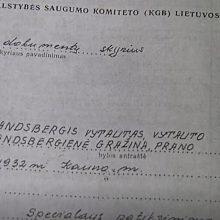 ALSTYBĖS SAUGUMO KOMITETO (KGB) LIETUVOS
dokumentų skyrius
kyriaus pavadinimas
ANDSBERGIS VYTAUTAS, VYTAUTO
NDSBERGIENĖ GRAŽINA, PRANO
bylos antraštė
1932 m. Kauno m.
Specialaus